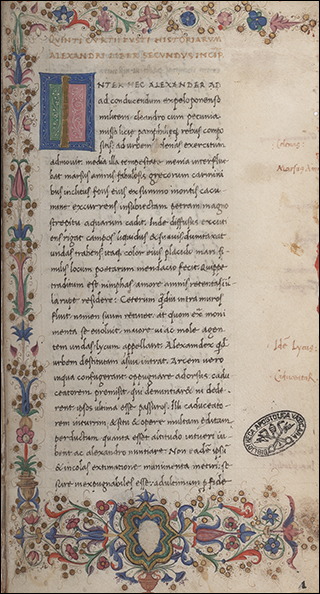 QUINTI CURTII RUFI HISTORIARUM
ALEXANDRI LIBER SECUNDUS INCIP.
INTER NEC ALEXANDER AD
ad conducendum expoloponenso
militem cleandro cum pecunia
misso licie pamphilieq; rebus compo
sitis ad urbem exercitum
admovit media illa tempestate menia interflue
bat marsias amnis fabulosis grecorum carmini
bus inclitus fons eius exsummo montis cacu
mine excurrens insubiectam petram magno
strepitu aquarum cadit Inde diffusus
rigat campos liquidus &suas dumtaxat
undas trahens itaq; color eius placido mari si
milis locum poetarum mendacio fecit Quippe
traditum est nimphas amore amnis retentas
la rupe residere: Ceterum qdiu intra muros
fluit nomen suum retinet: at quom
menta se evoluit maiore ui ac mole agen
tem undas lycum appellant: Alexander qd
urbem destitutam intrat. Arcem uero
inqua confugerant oppugnare adorsus cadu
ceatorem premisit qui denuntiaret ni dede
rent ipsos ultima esse passuros: Illi caduceato
rem inturrim &situ & opere multum editam
perductum quanta esset altitudo intueri iu
bent ac alexandro nuntiare: Non eadem ipsi
& incolas extimatione munimenta metiri: se
scire inexpugnabiles esse: adultimum p fide
Marsias
Lycus